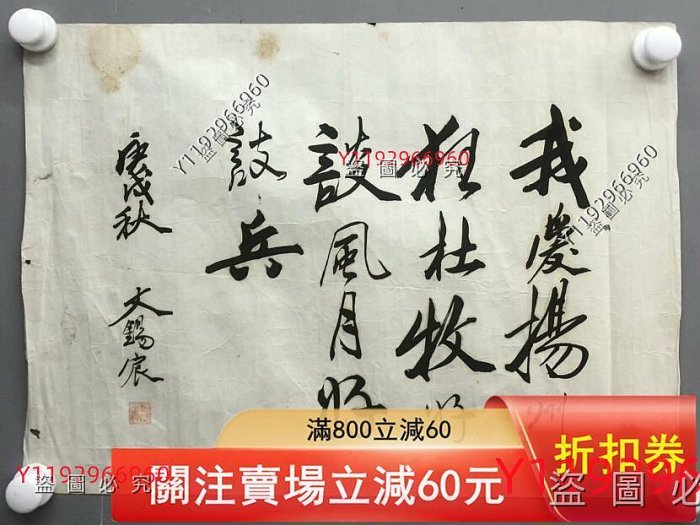 我愛揚州
狂杜牧好
談風月好
談兵
庚戌秋 文錫宸
Y1192966960
盜圖必究
Y1192966960
盜圖必究
Y1192966960
盜圖必究
Y1192966960
盜圖必究
滿800立減60
關注賣場立減60元
折扣券
盜圖必究